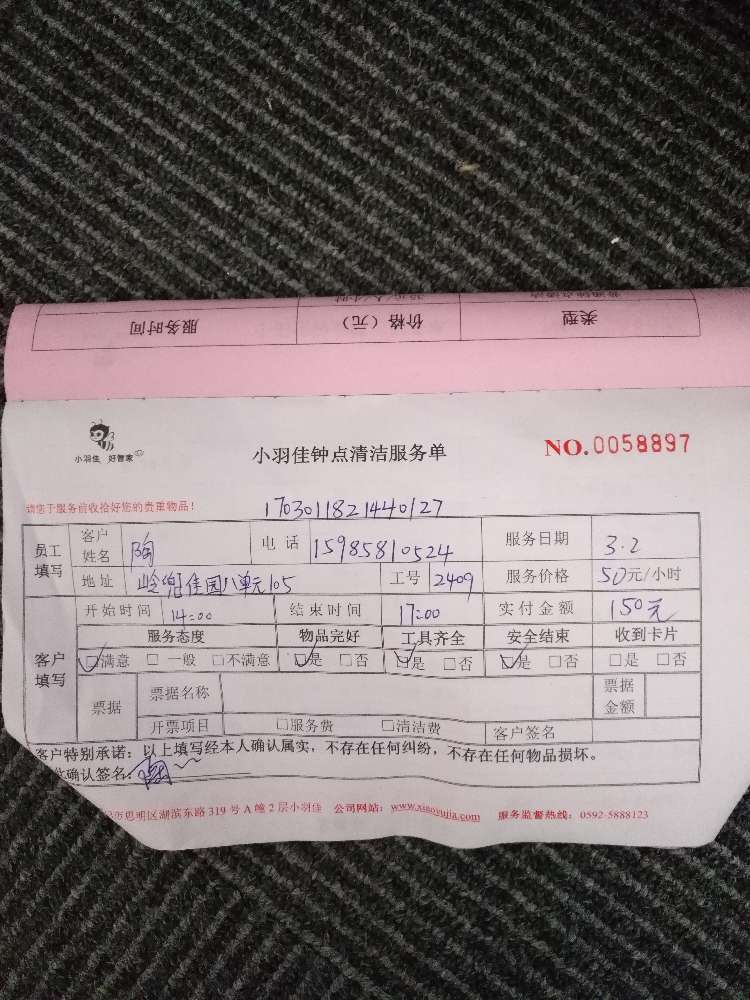 普通钟点清洁
类型 价格（元） 服务时间
小羽佳 好管家
小羽佳钟点清洁服务单
NO.0058897
请您于服务前收拾好您的贵重物品！
1703011821440127
员工填写 客户姓名 陶 电话 15985810524 服务日期 3.2
地址 岭兜佳园八单元105 工号 2409 服务价格 50元/小时
客户填写 开始时间 14:00 结束时间 17:00 实付金额 150元
服务态度 物品完好 工具齐全 安全结束 收到卡片
☑满意 □一般 □不满意 ☑是 □否 ☑是 □否 ☑是 □否 □是 □否
票据 票据名称 票据金额
开票项目 □服务费 □清洁费 客户签名
客户特别承诺：以上填写经本人确认属实，不存在任何纠纷，不存在任何物品损坏。
确认签名：
市思明区湖滨东路319号A幢2层小羽佳 公司网站：www.xiaoyujia.com 服务监督热线：0592-5888123